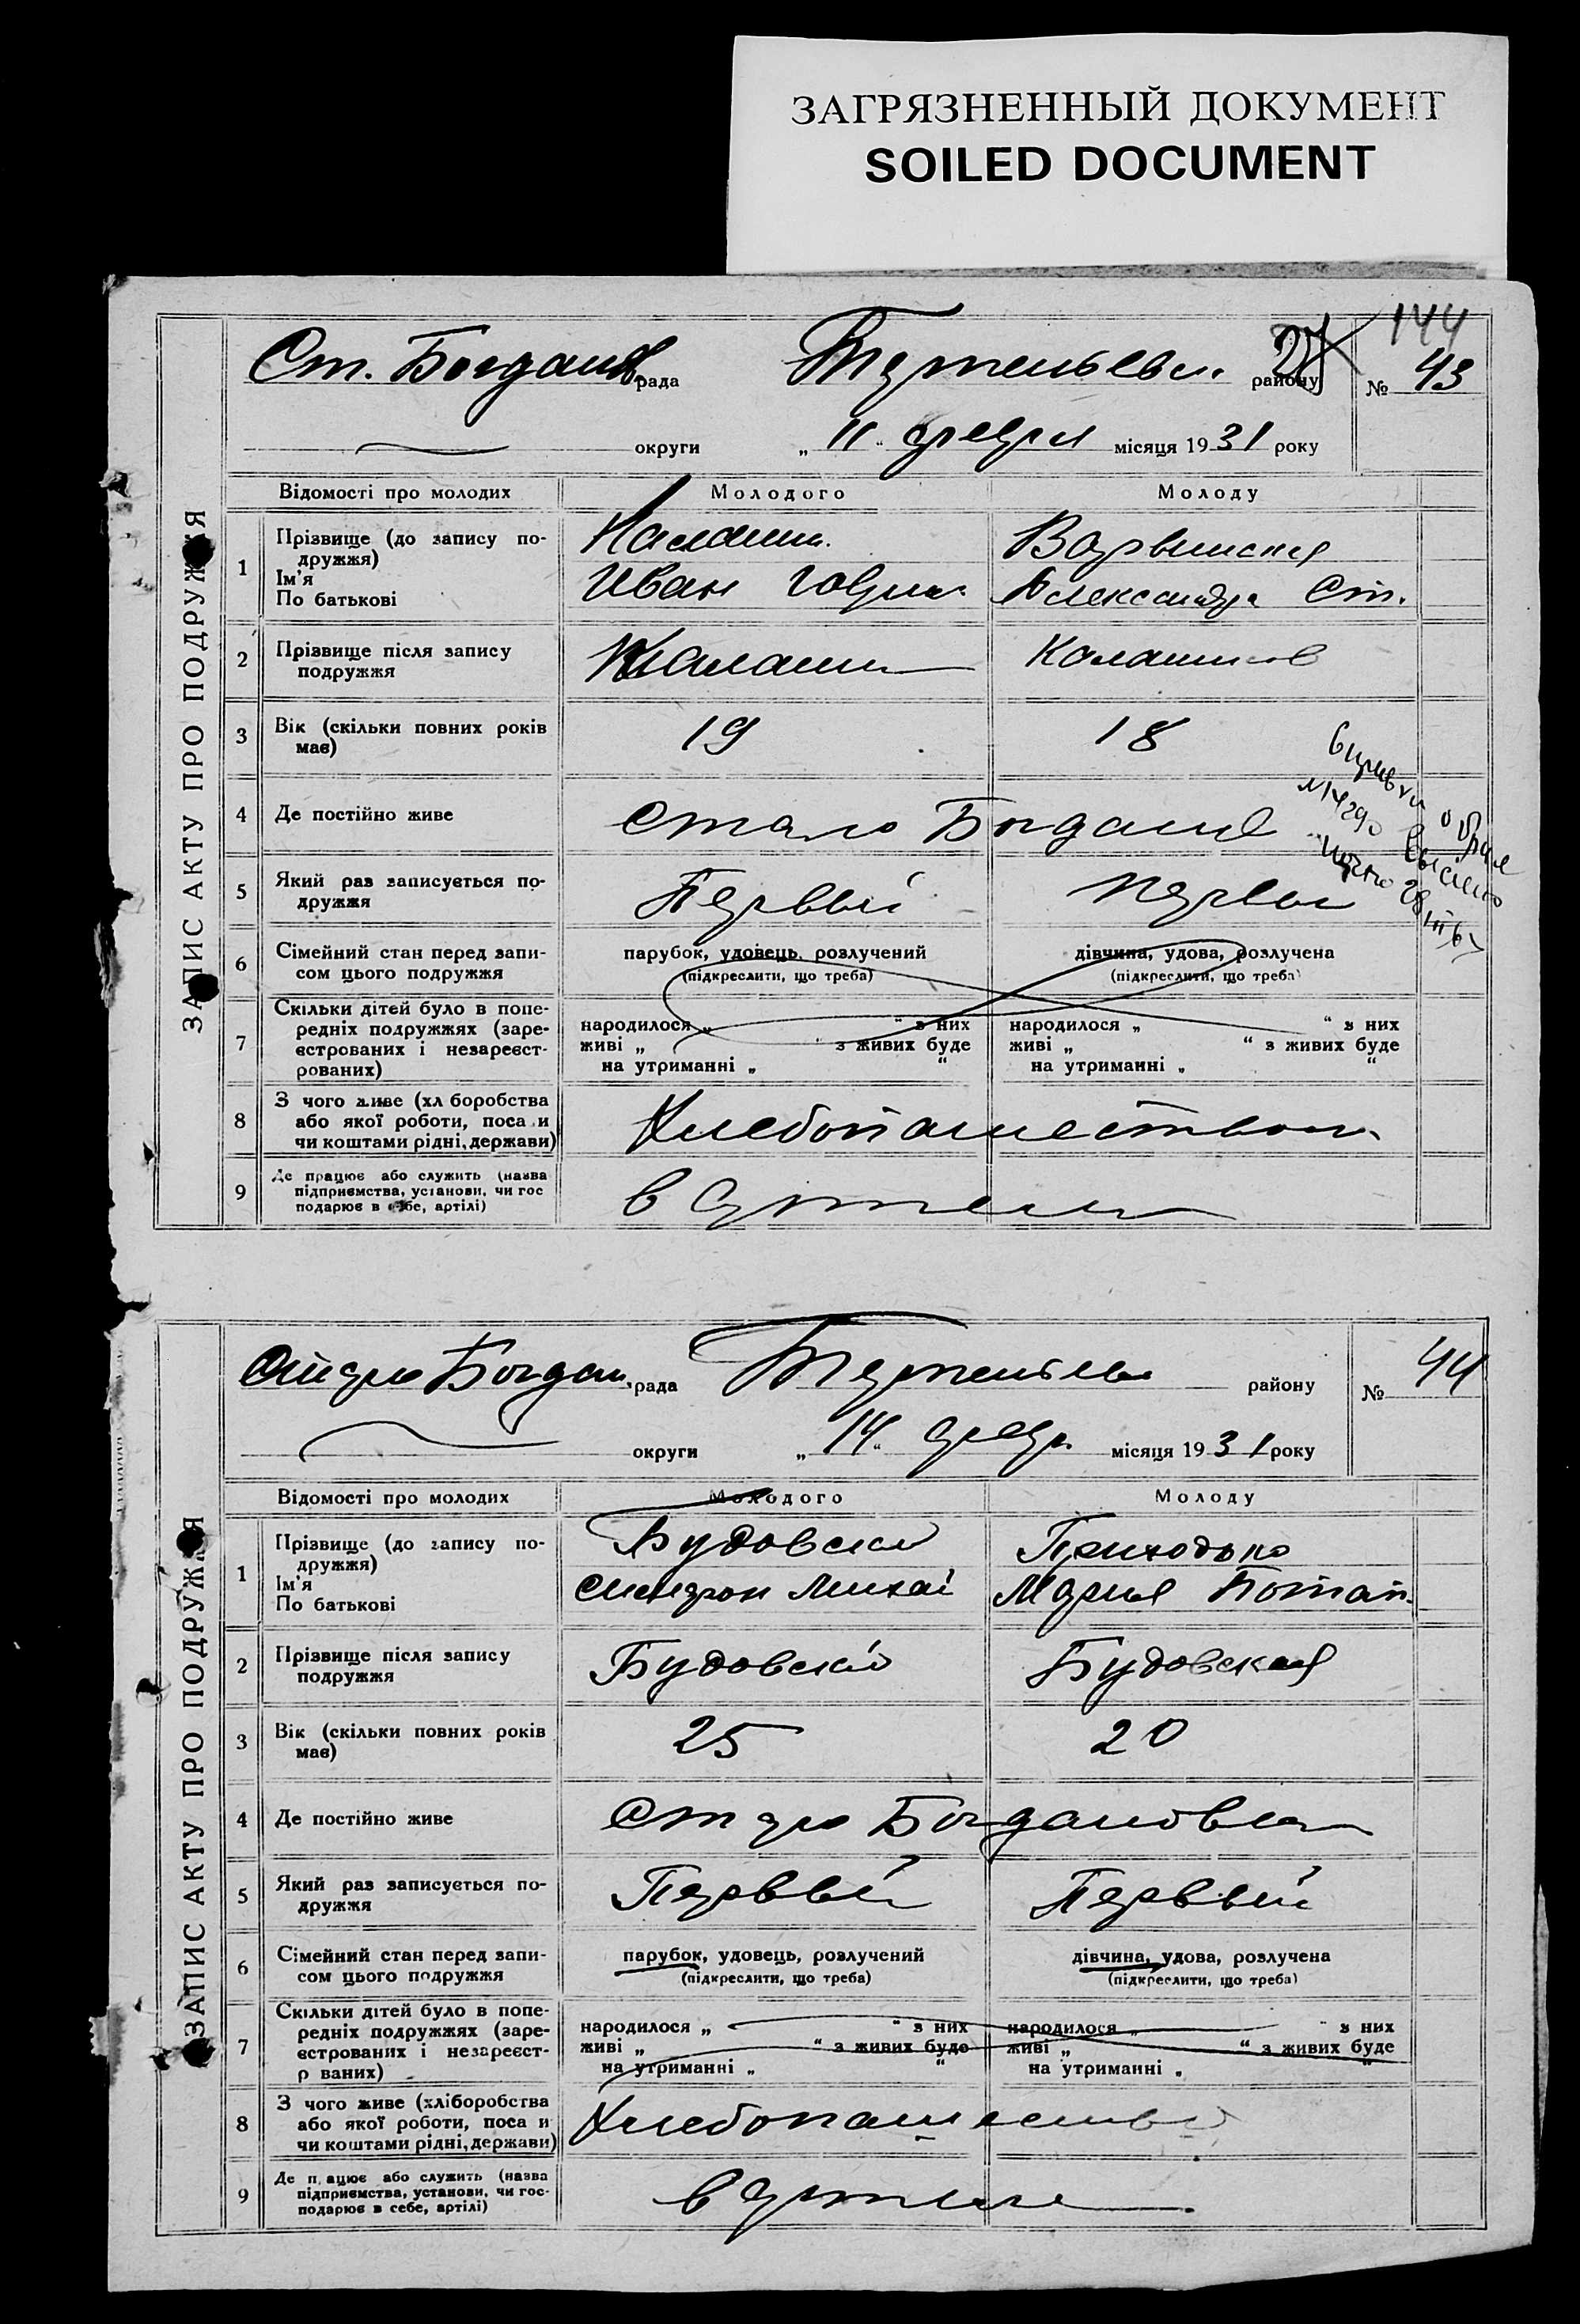 ЗАГРЯЗНЕННЫЙ ДОКУМЕНТ
SOILED DOCUMENT
144
Ст. Богданов рада району № 43
округи „ 11 “ февраля місяця 1931 року
ЗАПИС АКТУ ПРО ПОДРУЖЖЯ
Відомості про молодих Молодого Молоду
1 Прізвище (до запису подружжя) Ім'я По батькові
Иван Гаврил. Александра Ст.
2 Прізвище після запису подружжя
3 Вік (скільки повних років має) 19 18
4 Де постійно живе Старо Богдановка
5 Який раз записується подружжя Первый Первый
6 Сімейний стан перед записом цього подружжя парубок, удовець, розлучений дівчина, удова, розлучена
(підкреслити, що треба) (підкреслити, що треба)
7 Скільки дітей було в попередніх подружжях (зареєстрованих і незареєстрованих)
народилося „ “ з них народилося „ “ з них
живі „ “ з живих буде живі „ “ з живих буде
на утриманні „ “ на утриманні „ “
8 З чого живе (хл боробства або якої роботи, поса и чи коштами рідні, держави) Хлебопашеством
9 Де працює або служить (назва підприємства, установи, чи господарює в себе, артілі) в артели
Старо Богдан. рада району № 44
округи „ 14 “ февр. місяця 1931 року
ЗАПИС АКТУ ПРО ПОДРУЖЖЯ
Відомості про молодих Молодого Молоду
1 Прізвище (до запису подружжя) Ім'я По батькові
Будовский Приходько
Михай Мария Потап.
2 Прізвище після запису подружжя Будовский Будовская
3 Вік (скільки повних років має) 25 20
4 Де постійно живе Старо Богдановка
5 Який раз записується подружжя Первый Первый
6 Сімейний стан перед записом цього подружжя парубок, удовець, розлучений дівчина, удова, розлучена
(підкреслити, що треба) (підкреслити, що треба)
7 Скільки дітей було в попередніх подружжях (зареєстрованих і незареєстр ваних)
народилося „ “ з них народилося „ “ з них
живі „ “ з живих буде живі „ “ з живих буде
на утриманні „ “ на утриманні „ “
8 З чого живе (хліборобства або якої роботи, поса и чи коштами рідні, держави) Хлебопашество
9 Де п ацює або служить (назва підприємства, установи, чи господарює в себе, артілі) в артели